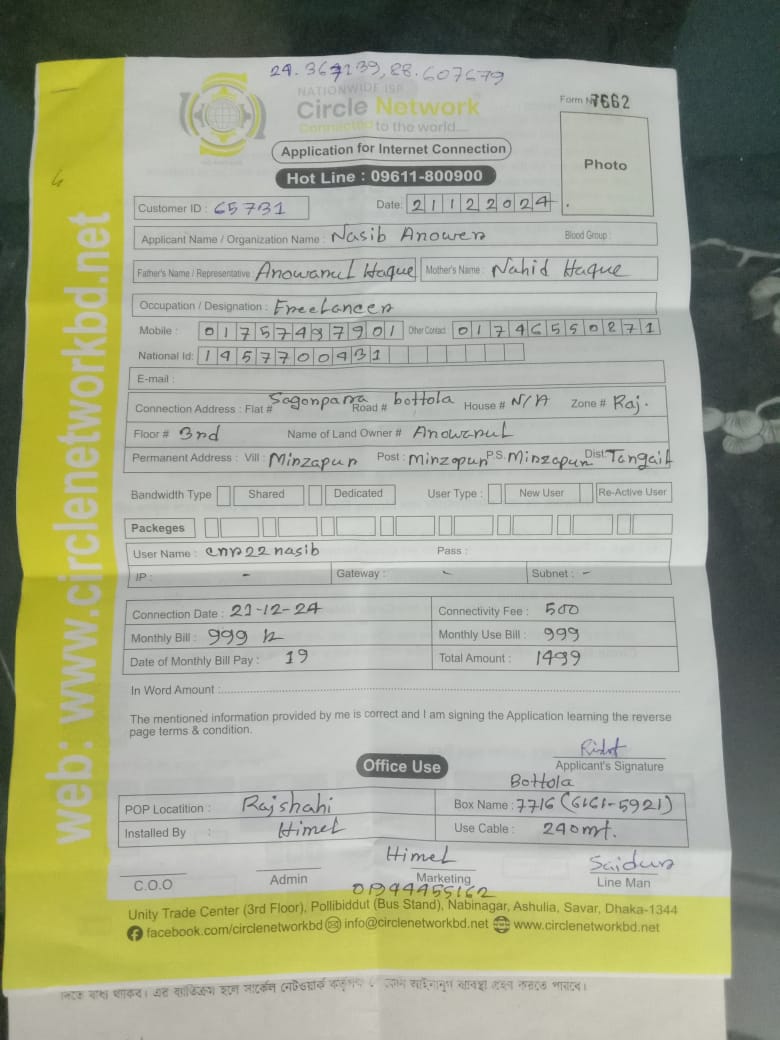 24.367239,88.607679
NATIONWIDE ISP
Circle Network
Connected to the world....
Form N 7662
Application for Internet Connection
Photo
Hot Line : 09611-800900
Customer ID : 65731
Date: 21122024
Applicant Name / Organization Name : Nasib Anower Blood Group :
Father's Name / Representative : Anowarul Haque Mother's Name : Nahid Haque
Occupation / Designation : Freelancer
Mobile : 01757497901 Other Contact : 01746550271
National Id: 1957700431
E-mail :
Connection Address : Flat # Sagorpara Road # bottola House # N/A Zone # Raj.
Floor # 3rd Name of Land Owner # Anowarul
Permanent Address : Vill : Mirzapur Post : Mirzapur P.S. Mirzapur Dist. Tangail
Bandwidth Type Shared Dedicated User Type : New User Re-Active User
Packeges
User Name : cnr22nasib Pass :
IP : - Gateway : - Subnet : -
Connection Date : 21-12-24 Connectivity Fee : 500
Monthly Bill : 999 Monthly Use Bill : 999
Date of Monthly Bill Pay : 19 Total Amount : 1499
In Word Amount :
The mentioned information provided by me is correct and I am signing the Application learning the reverse
page terms & condition.
Applicant's Signature
Office Use
Bottola
POP Locatition : Rajshahi Box Name : 7716 (6161-5921)
Installed By : Himel Use Cable : 240mt.
Himel Saidur
C.O.O Admin Marketing Line Man
01944455162
Unity Trade Center (3rd Floor), Pollibiddut (Bus Stand), Nabinagar, Ashulia, Savar, Dhaka-1344
facebook.com/circlenetworkbd info@circlenetworkbd.net www.circlenetworkbd.net
web: www.circlenetworkbd.net
বাধ্য থাকিব। এর ব্যতিক্রম হলে সার্কেল নেটওয়ার্ক আইনানুগ ব্যবস্থা গ্রহন করতে পারবে।